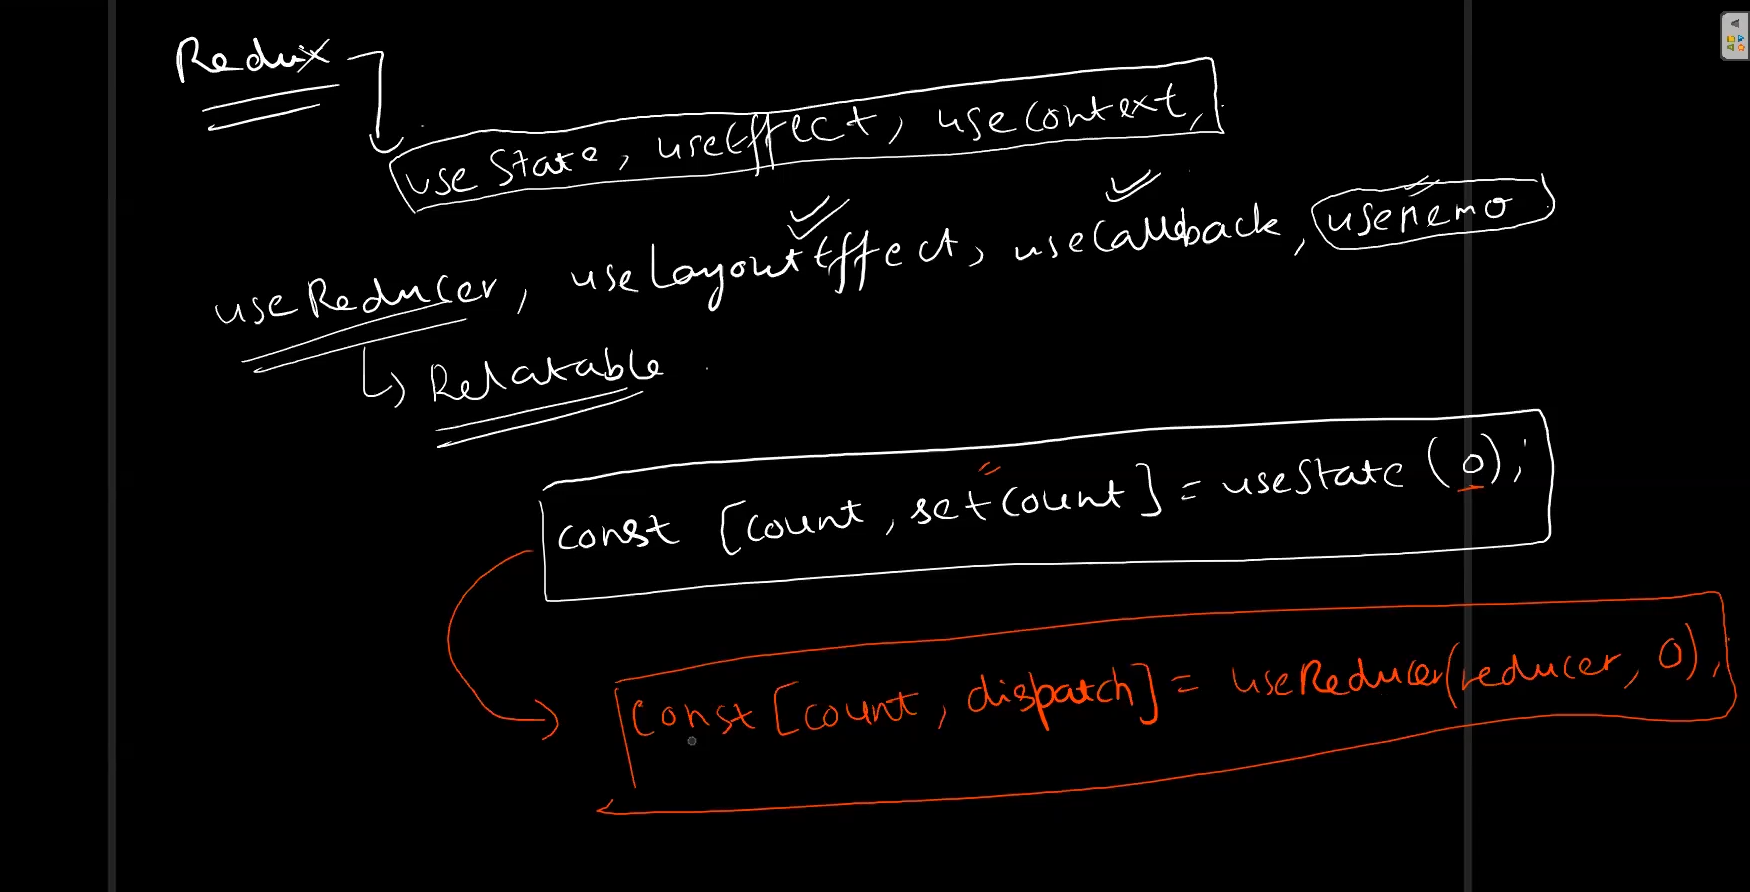 Redux
useState, useEffect, useContext,
useReducer, useLayoutEffect, useCallback, useMemo
Relatable
const [count, setCount] = useState (0);
const [count, dispatch] = useReducer(reducer, 0),